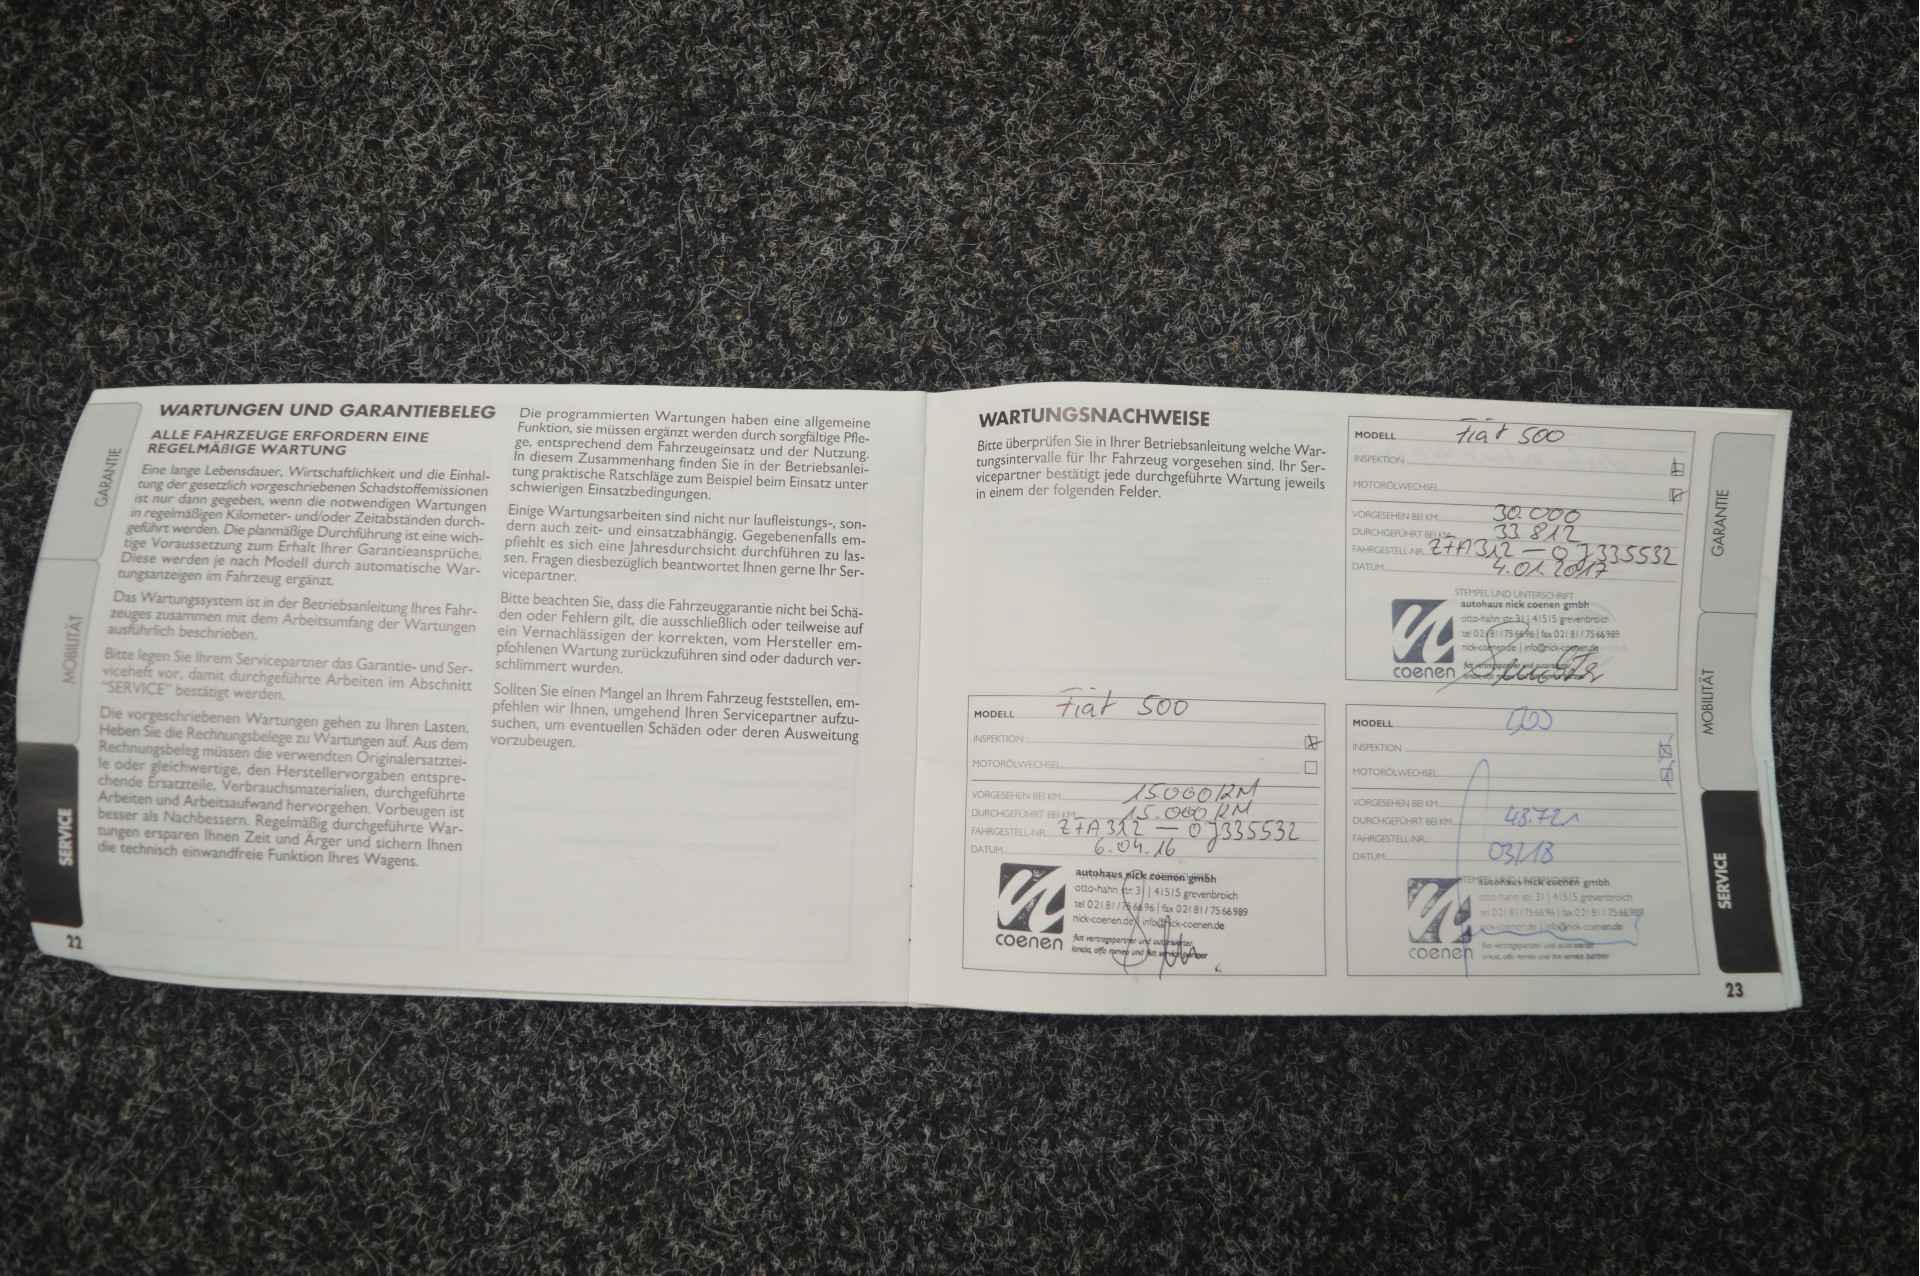 GARANTIE
MOBILITÄT
SERVICE
WARTUNGEN UND GARANTIEBELEG
ALLE FAHRZEUGE ERFORDERN EINE
REGELMÄßIGE WARTUNG
Eine lange Lebensdauer, Wirtschaftlichkeit und die Einhal-
tung der gesetzlich vorgeschriebenen Schadstoffemissionen
ist nur dann gegeben, wenn die notwendigen Wartungen
in regelmäßigen Kilometer- und/oder Zeitabständen durch-
geführt werden. Die planmäßige Durchführung ist eine wich-
tige Voraussetzung zum Erhalt Ihrer Garantieansprüche.
Diese werden je nach Modell durch automatische War-
tungsanzeigen im Fahrzeug ergänzt.
Das Wartungssystem ist in der Betriebsanleitung Ihres Fahr-
zeuges zusammen mit dem Arbeitsumfang der Wartungen
ausführlich beschrieben.
Bitte legen Sie Ihrem Servicepartner das Garantie- und Ser-
viceheft vor, damit durchgeführte Arbeiten im Abschnitt
"SERVICE" bestätigt werden.
Die vorgeschriebenen Wartungen gehen zu Ihren Lasten.
Heben Sie die Rechnungsbelege zu Wartungen auf. Aus dem
Rechnungsbeleg müssen die verwendeten Originalersatztei-
le oder gleichwertige, den Herstellervorgaben entspre-
chende Ersatzteile, Verbrauchsmaterialien, durchgeführte
Arbeiten und Arbeitsaufwand hervorgehen. Vorbeugen ist
besser als Nachbessern. Regelmäßig durchgeführte War-
tungen ersparen Ihnen Zeit und Ärger und sichern Ihnen
die technisch einwandfreie Funktion Ihres Wagens.
22
Die programmierten Wartungen haben eine allgemeine
Funktion, sie müssen ergänzt werden durch sorgfältige Pfle-
ge, entsprechend dem Fahrzeugeinsatz und der Nutzung.
In diesem Zusammenhang finden Sie in der Betriebsanlei-
tung praktische Ratschläge zum Beispiel beim Einsatz unter
schwierigen Einsatzbedingungen.
Einige Wartungsarbeiten sind nicht nur laufleistungs-, son-
dern auch zeit- und einsatzabhängig. Gegebenenfalls em-
pfiehlt es sich eine Jahresdurchsicht durchführen zu las-
sen. Fragen diesbezüglich beantwortet Ihnen gerne Ihr Ser-
vicepartner.
Bitte beachten Sie, dass die Fahrzeuggarantie nicht bei Schä-
den oder Fehlern gilt, die ausschließlich oder teilweise auf
ein Vernachlässigen der korrekten, vom Hersteller em-
pfohlenen Wartung zurückzuführen sind oder dadurch ver-
schlimmert wurden.
Sollten Sie einen Mangel an Ihrem Fahrzeug feststellen, em-
pfehlen wir Ihnen, umgehend Ihren Servicepartner aufzu-
suchen, um eventuellen Schäden oder deren Ausweitung
vorzubeugen.
WARTUNGSNACHWEISE
Bitte überprüfen Sie in Ihrer Betriebsanleitung welche War-
tungsintervalle für Ihr Fahrzeug vorgesehen sind. Ihr Ser-
vicepartner bestätigt jede durchgeführte Wartung jeweils
in einem der folgenden Felder.
MODELL Fiat 500
INSPEKTION
MOTORÖLWECHSEL
VORGESEHEN BEI KM 15000KM
DURCHGEFÜHRT BEI KM 15.000KM
FAHRGESTELL-NR. ZFA312 — 0J335532
DATUM 6.04.16
autohaus nick coenen gmbh
otto-hahn str. 31 | 41515 grevenbroich
tel 02181/756696 | fax 02181/7566989
nick-coenen.de | info@nick-coenen.de
fiat vertragspartner und autorisierter
lancia, alfa romeo und fiat service partner
coenen
MODELL Fiat 500
INSPEKTION
MOTORÖLWECHSEL
VORGESEHEN BEI KM 30.000
DURCHGEFÜHRT BEI KM 33812
FAHRGESTELL-NR. ZFA312 — 0J335532
DATUM 4.01.2017
STEMPEL UND UNTERSCHRIFT
autohaus nick coenen gmbh
otto-hahn str. 31 | 41515 grevenbroich
tel 02181/756696 | fax 02181/7566989
nick-coenen.de | info@nick-coenen.de
fiat vertragspartner und autorisierter
coenen
MODELL 500
INSPEKTION
MOTORÖLWECHSEL
VORGESEHEN BEI KM
DURCHGEFÜHRT BEI KM 48.721
FAHRGESTELL-NR.
DATUM 03/18
STEMPEL UND UNTERSCHRIFT
autohaus nick coenen gmbh
otto-hahn str. 31 | 41515 grevenbroich
tel 02181/756696 | fax 02181/7566989
nick-coenen.de | info@nick-coenen.de
fiat vertragspartner und autorisierter
lancia, alfa romeo und fiat service partner
coenen
GARANTIE
MOBILITÄT
SERVICE
23